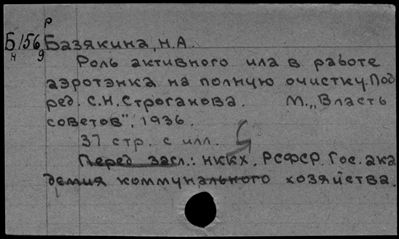 Р
Б/156 Базякина, Н.А.
н 9
Роль активного ила в работе
аэротэнка на полную очистку. Под
ред. С.Н. Строганова. М., „Власть
советов", 1936.
37 стр. с илл.
Перед загл.: НККХ. РСФСР. Гос. ака
демия коммунального хозяйства.